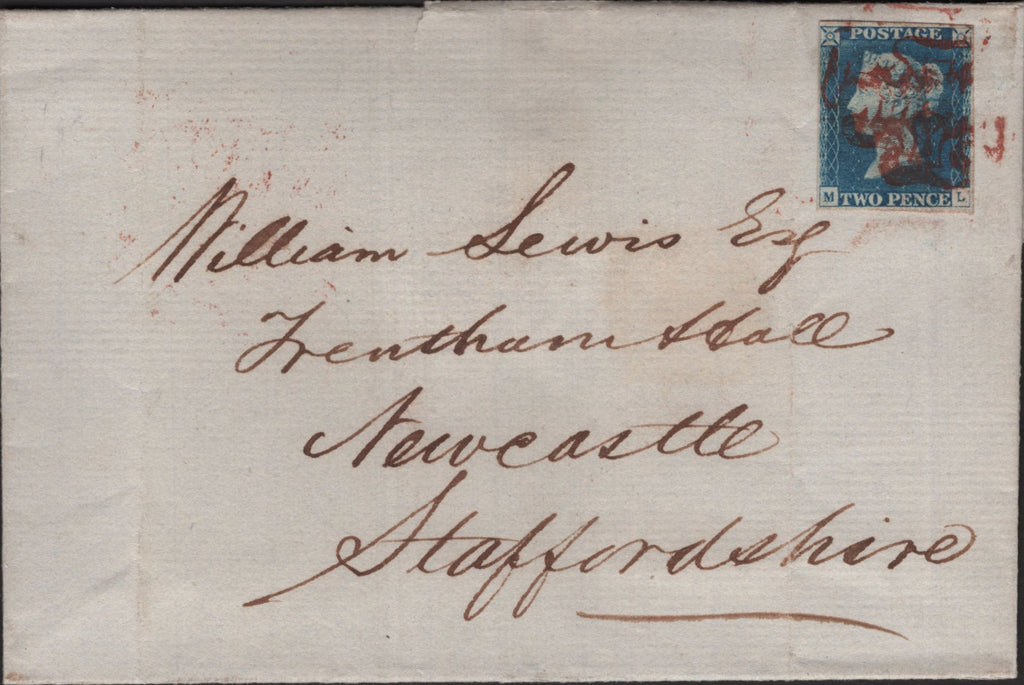 POSTAGE
M TWO PENCE L
William Lewis Esq
Trentham Hall
Newcastle
Staffordshire